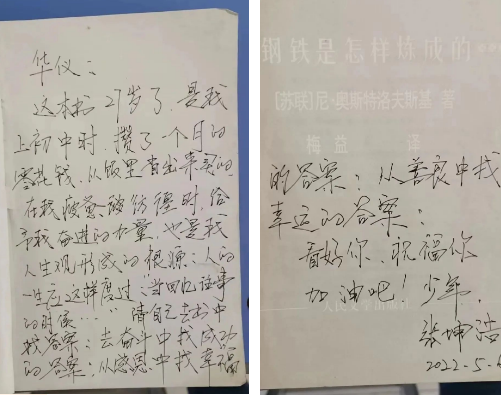 华仪：
这本书27岁了，是我
上初中时，攒了一个月的
零花钱，从饭里省出来买的
在我疲惫彷徨时，给
予我奋进的力量，也是我
人生观形成的根源：人的
一生应这样度过：当回忆往事
的时候……”请自己去书中
找答案：去奋斗中找成功
的答案；从感恩中找幸福
钢铁是怎样炼成的
[苏联]尼·奥斯特洛夫斯基 著
梅益 译
的答案；从善良中找
幸运的答案；
看好你、祝福你
加油吧！少年，
张坤浩
2022.5.6